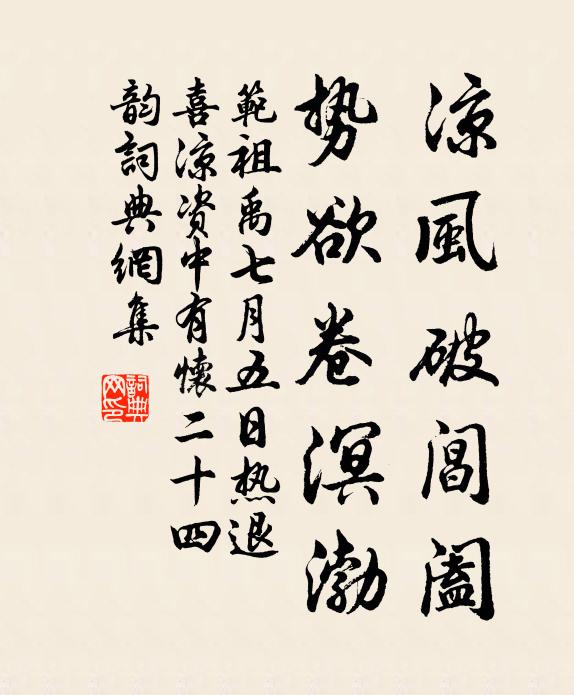 凉風破閶阖
势欲卷溟渤
範祖禹七月五日热退
喜凉资中有懷二十四
韵詞典網集
詞典网印